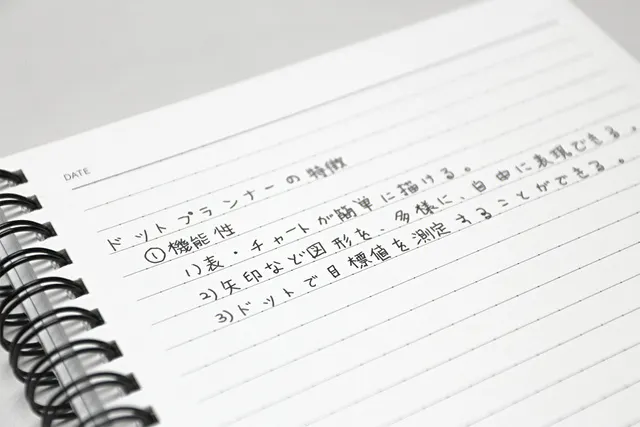 DATE
ドットプランナーの特徴
①機能性
1)表・チャートが簡単に描ける。
2)矢印など図形を、多様に、自由に表現できる。
3)ドットで目標値を測定することができる。